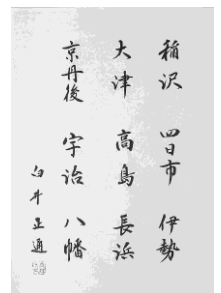 稲沢 四日市 伊勢
大津 高島 長浜
京丹後 宇治 八幡
白井正通